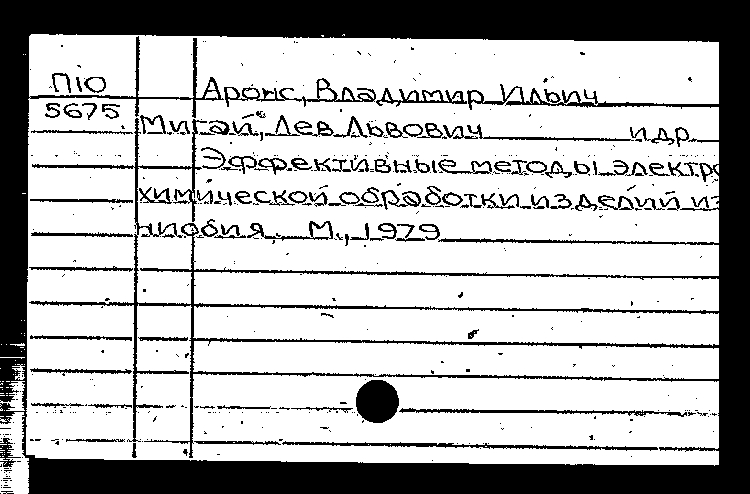 П10
5675
Аронс, Владимир Ильич
Мигай, Лев Львович и др.
Эффективные методы электро
химической обработки изделий из
ниобия. М., 1979